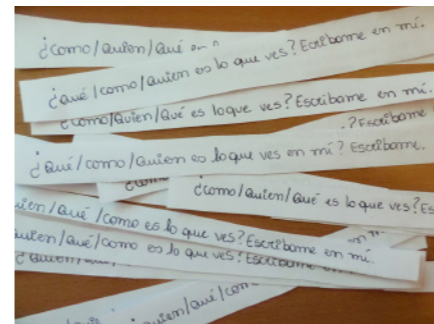 ¿Como/Quien/Qué
¿Qué/como/quien es lo que ves? Escribame en mí.
¿Como/Quien/Qué es lo que ves? Escribame en mí.
? Escribame
¿Qué/como/quien es lo que ves en mí? Escribame.
¿Como/Quien/Qué es lo que ves? Es
uien/Qué/como es lo que ves? Escribame en mí.
uien/Qué/como es lo que ves? Escribame en mí.
quien/qué/com